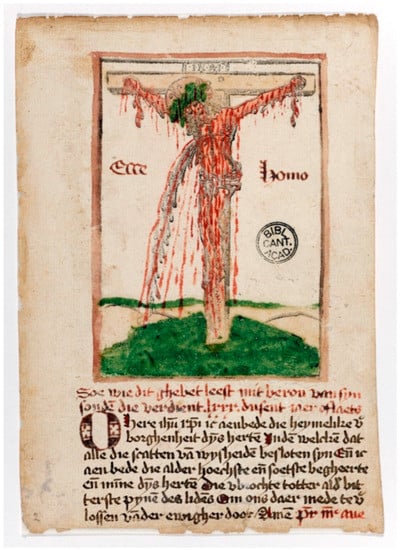 I·N·R·I
Ecce homo
BIBL.
CANT.
ACAD.
Soe wie dit ghebet leest mit berou van syn
sondē die verdient .lxxx. dusent iaer oflaets
O here ihū xp̄i ic aenbede die heymelike v̄
borghenheit dȳs hertē Inden welckē dat
alle die scatten van wysheide besloten syn Eñ ic
aen bede die alder hoechste eñ soetste begheerte
eñ minne dȳs herten die v brochte totter ald̄ bit
terste pyne des lidens Om ons daer mede te v̄
lossen vander ewigher doot Amen pr̄ nr̄ aue